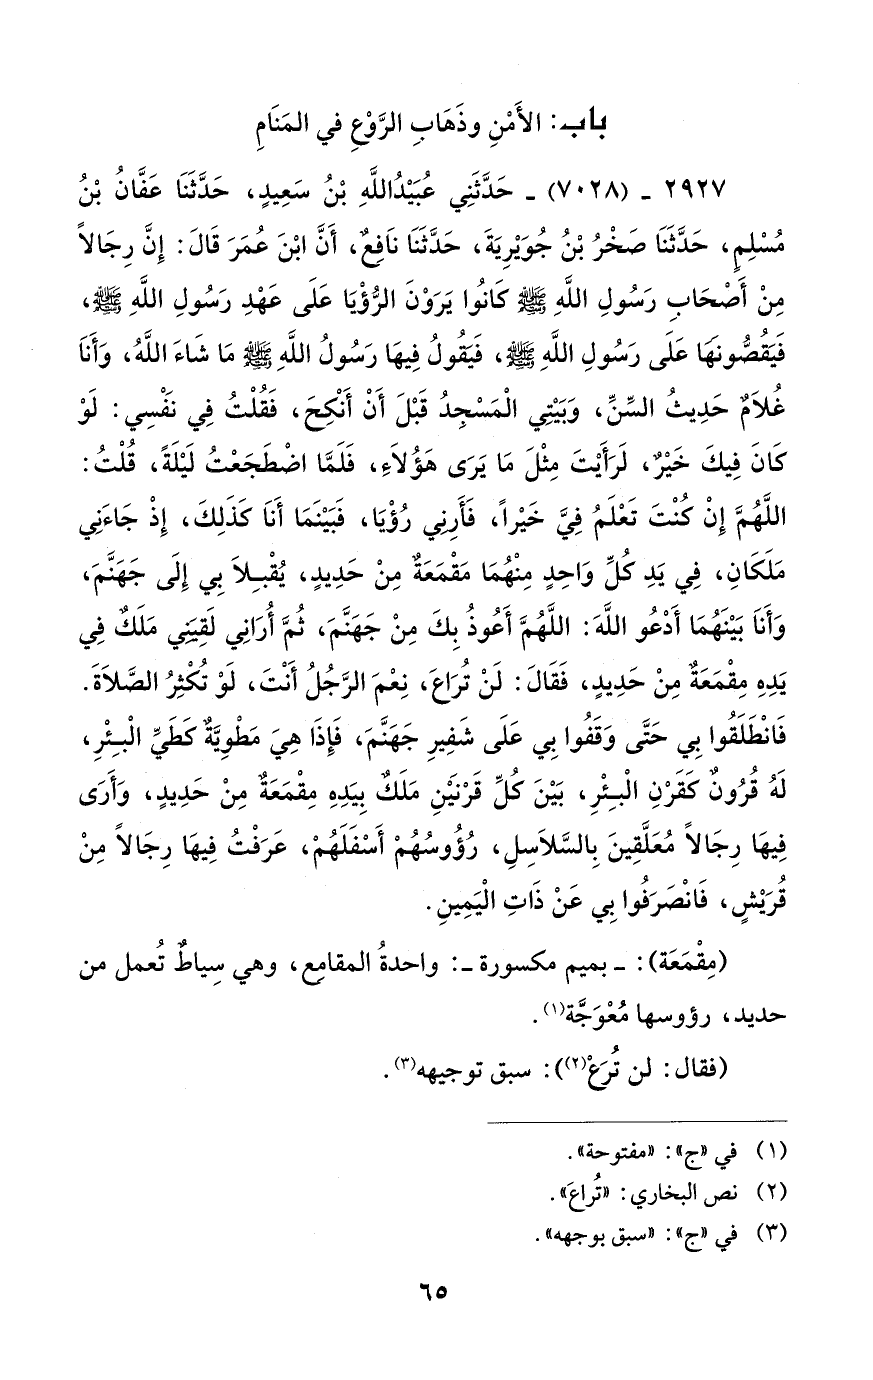 باب: الأَمْنِ وذَهَابِ الرَّوْعِ في المَنَامِ
٢٩٢٧ - (٧٠٢٨) - حَدَّثَنِي عُبَيْدُاللَّهِ بْنُ سَعِيدٍ، حَدَّثَنَا عَفَّانُ بْنُ
مُسْلِمٍ، حَدَّثَنَا صَخْرُ بْنُ جُوَيْرِيَةَ، حَدَّثَنَا نَافِعٌ، أَنَّ ابْنَ عُمَرَ قَالَ: إِنَّ رِجَالاً
مِنْ أَصْحَابِ رَسُولِ اللَّهِ ﷺ كَانُوا يَرَوْنَ الرُّؤْيَا عَلَى عَهْدِ رَسُولِ اللَّهِ ﷺ،
فَيَقُصُّونَهَا عَلَى رَسُولِ اللَّهِ ﷺ، فَيَقُولُ فِيهَا رَسُولُ اللَّهِ ﷺ مَا شَاءَ اللَّهُ، وَأَنَا
غُلاَمٌ حَدِيثُ السِّنِّ، وَبَيْتِي الْمَسْجِدُ قَبْلَ أَنْ أَنْكِحَ، فَقُلْتُ فِي نَفْسِي: لَوْ
كَانَ فِيكَ خَيْرٌ، لَرَأَيْتَ مِثْلَ مَا يَرَى هَؤُلاَءِ، فَلَمَّا اضْطَجَعْتُ لَيْلَةً، قُلْتُ:
اللَّهُمَّ إِنْ كُنْتَ تَعْلَمُ فِيَّ خَيْراً، فَأَرِنِي رُؤْيَا، فَبَيْنَمَا أَنَا كَذَلِكَ، إِذْ جَاءَنِي
مَلَكَانِ، فِي يَدِ كُلِّ وَاحِدٍ مِنْهُمَا مَقْمَعَةٌ مِنْ حَدِيدٍ، يُقْبِلاَ بِي إِلَى جَهَنَّمَ،
وَأَنَا بَيْنَهُمَا أَدْعُو اللَّهَ: اللَّهُمَّ أَعُوذُ بِكَ مِنْ جَهَنَّمَ، ثُمَّ أُرَانِي لَقِيَنِي مَلَكٌ فِي
يَدِهِ مِقْمَعَةٌ مِنْ حَدِيدٍ، فَقَالَ: لَنْ تُرَاعَ، نِعْمَ الرَّجُلُ أَنْتَ، لَوْ تُكْثِرُ الصَّلاَةَ.
فَانْطَلَقُوا بِي حَتَّى وَقَفُوا بِي عَلَى شَفِيرِ جَهَنَّمَ، فَإِذَا هِيَ مَطْوِيَّةٌ كَطَيِّ الْبِئْرِ،
لَهُ قُرُونٌ كَقَرْنِ الْبِئْرِ، بَيْنَ كُلِّ قَرْنَيْنِ مَلَكٌ بِيَدِهِ مِقْمَعَةٌ مِنْ حَدِيدٍ، وَأَرَى
فِيهَا رِجَالاً مُعَلَّقِينَ بِالسَّلاَسِلِ، رُؤُوسُهُمْ أَسْفَلَهُمْ، عَرَفْتُ فِيهَا رِجَالاً مِنْ
قُرَيْشٍ، فَانْصَرَفُوا بِي عَنْ ذَاتِ الْيَمِينِ.
(مِقْمَعَة): - بميم مكسورة -: واحدةُ المقامعِ، وهي سِياطٌ تُعمل من
حديد، رؤوسها مُعْوَجَّة(١).
(فقال: لن تُرَعْ(٢)): سبق توجيهه(٣).
(١) في «ج»: «مفتوحة».
(٢) نص البخاري: «تُراعَ».
(٣) في «ج»: «سبق بوجهه».
٦٥